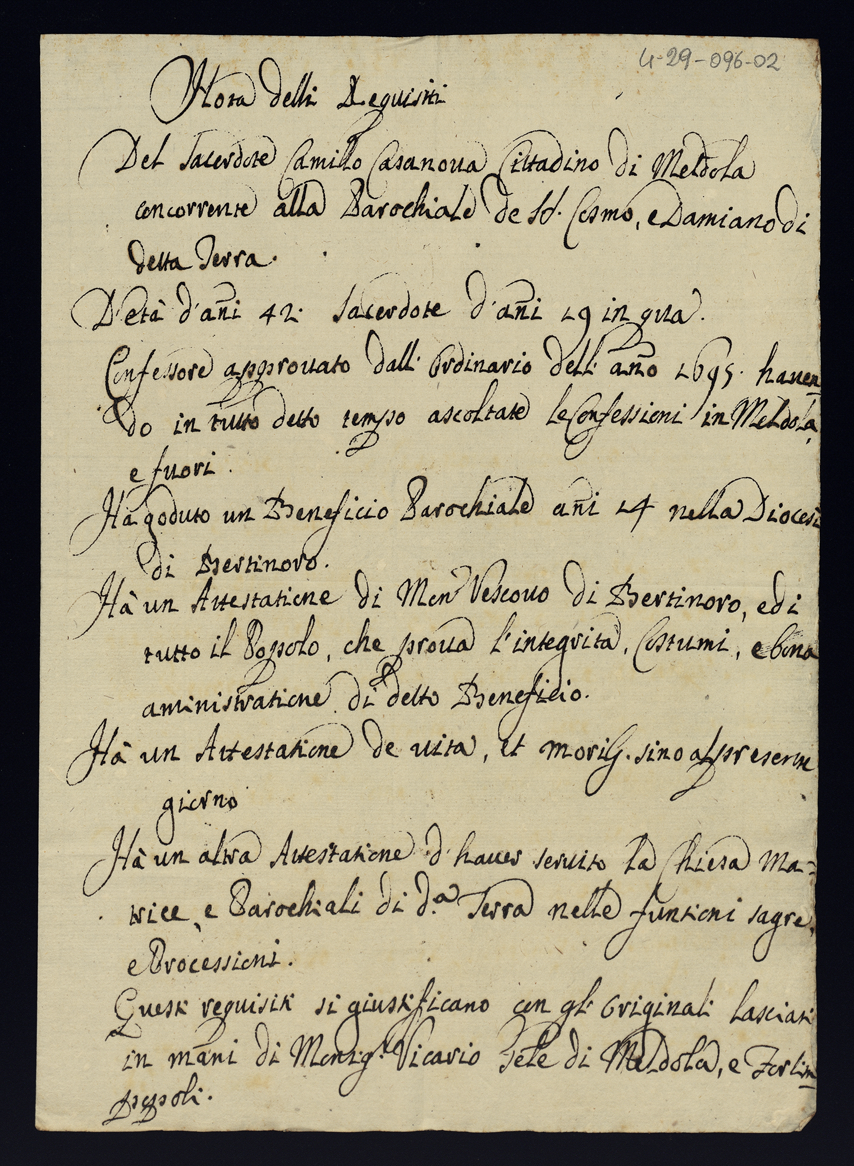 4-29-096-02
Nota delli Requisiti
Del Sacerdote Camillo Casanova Cittadino di Meldola
concorrente alla Parochiale de SS. Cosmo, e Damiano di
detta Terra.
D'età d'ani 42. Sacerdote d'ani 19 in qua.
Confessore approuato dall' Ordinario dell' año 1695. hauen
do in tutto detto tempo ascoltate le Confessioni in Meldola,
e fuori.
Hà goduto un Beneficio Parochiale ani 14 nella Diocesi
di Bertinoro.
Hà un Attestatione di Mon.r Vescouo di Bertinoro, e di
tutto il Popolo, che proua l'integrità, Costumi, e bona
aministratione di detto Beneficio.
Hà un Attestatione de uita, et morib. sino al presente
giorno
Hà un altra Attestatione d'hauer seruito la Chiesa Ma-
trice, e Parochiali di d.a Terra nelle funtioni sagre,
e Processioni.
Questi requisiti si giustificano con gl' Originali lasciati
in mani di Monsig.r Vicario Gñle di Meldola, e Forlim
popoli.